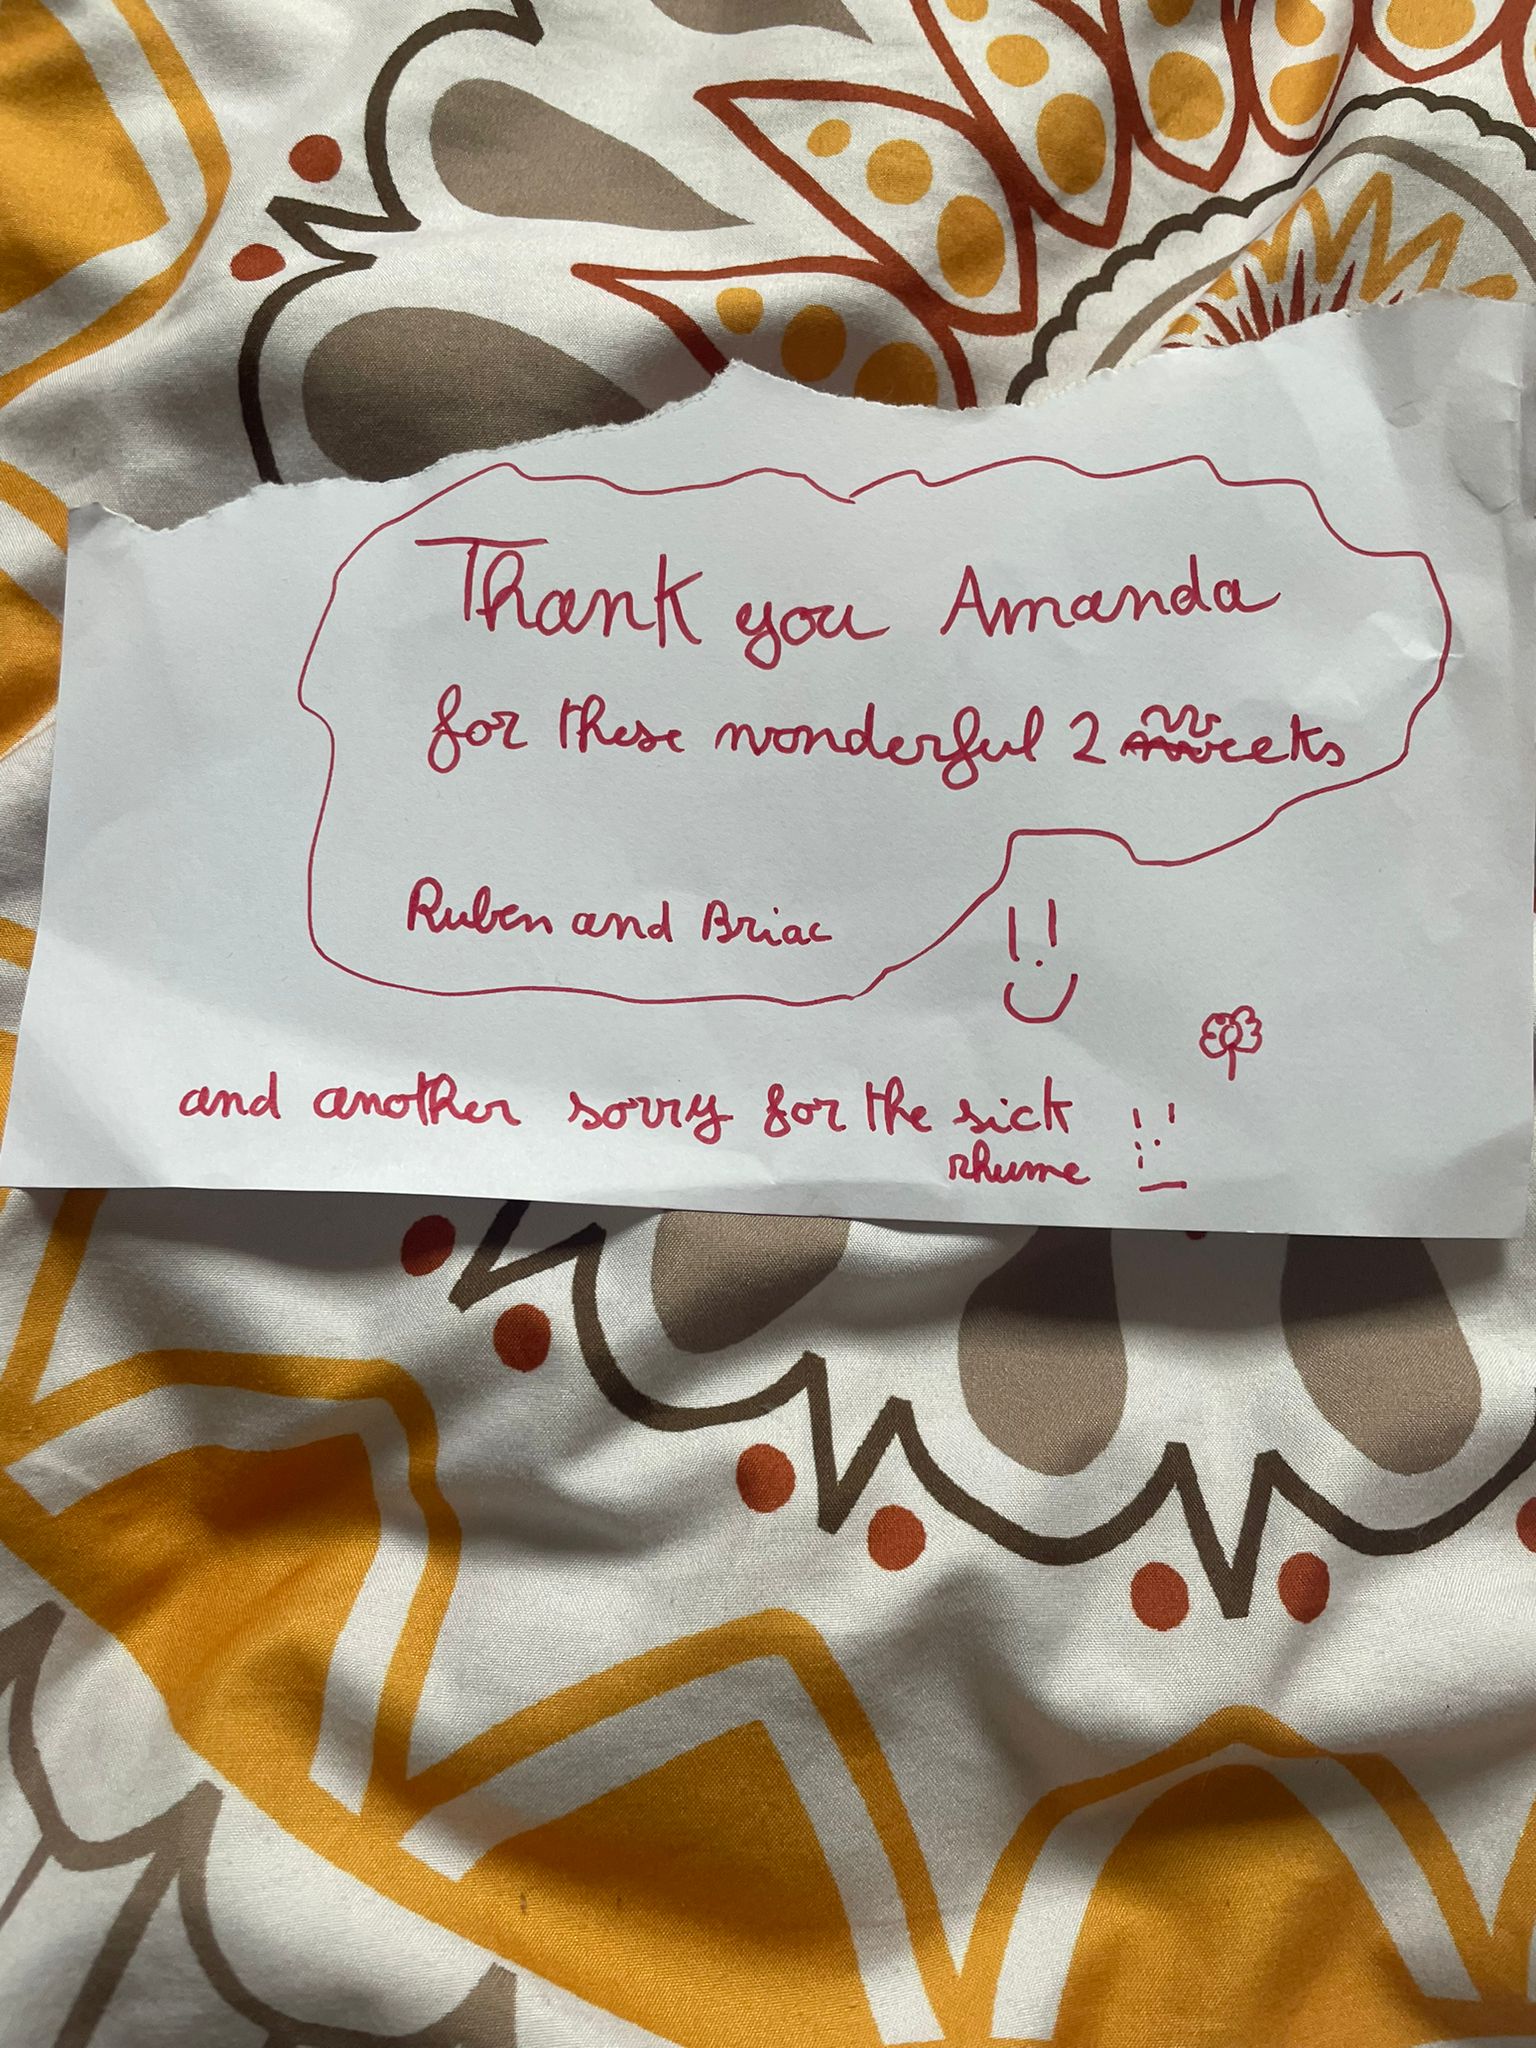 Thank you Amanda
for these wonderful 2 weeks
Ruben and Briac
and another sorry for the sick
rhume